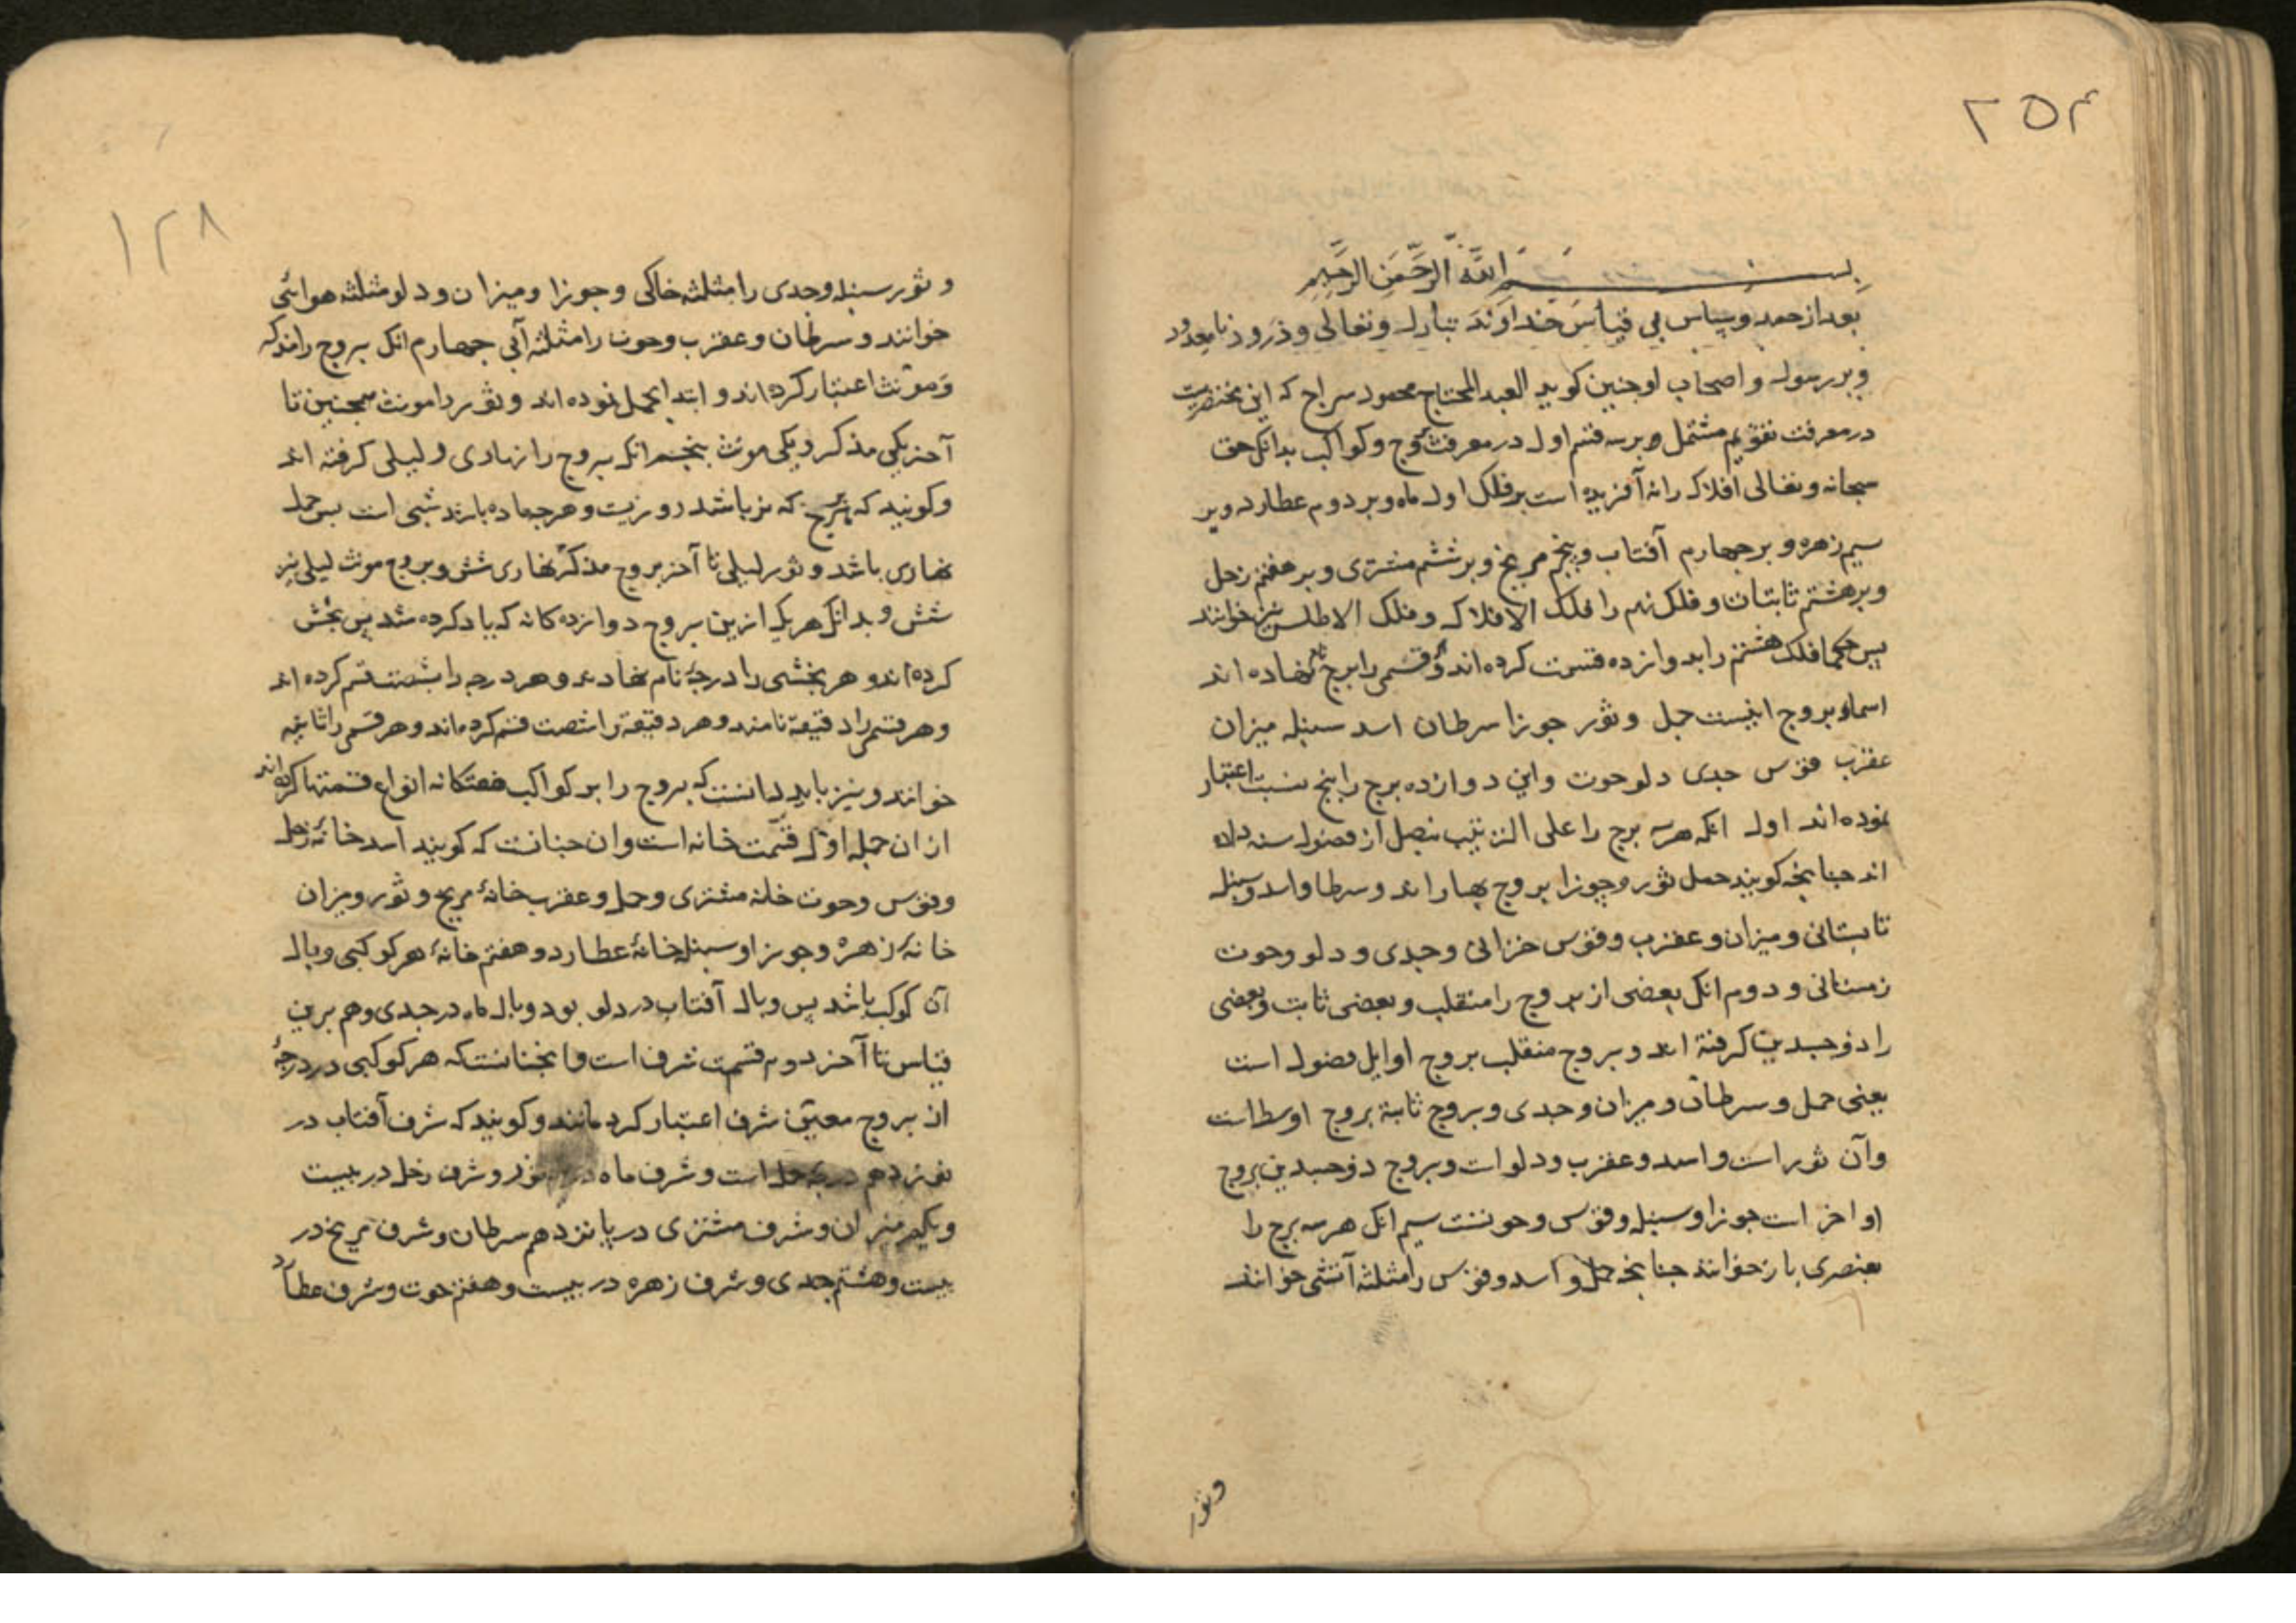 ۲۵۴
بسم الله الرحمن الرحیم
بعد از حمد و سپاس بی قیاس خداوند تبارک و تعالی و درود نامعدود
و بر رسول و اصحاب او چنین کوید العبد المحتاج محمود سراج که این مختصریست
در معرفت تقویم مشتمل بر سه قسم اول در معرفت بروج و کواکب بدانک حق
سبحانه و تعالی افلاک را نه آفریده است بر فلک اول ماه و بر دوم عطارد و بر
سیم زهره و بر چهارم آفتاب و پنجم مریخ و بر ششم مشتری و بر هفتم زحل
و بر هشتم ثابتان و فلک نهم را فلک الافلاک و فلک الاطلس نیز خوانند
پس حکما فلک هشتم را بدوازده قسمت کرده اند و قسمی را برج نام نهاده اند
اسماء بروج اینست حمل و ثور جوزا سرطان اسد سنبله میزان
عقرب قوس جدی دلو حوت و این دوازده برج را پنج نسبت اعتبار
نموده اند اول انکه هر سه برج را علی الترتیب بفصل از فصول سنه داده
اند چنانچه کویند حمل ثور و جوزا بروج بهار اند و سرطا و اسد و سنبله
تابستانی و میزان و عقرب و قوس خزانی و جدی و دلو و حوت
زمستانی و دوم انک بعضی از بروج را منقلب و بعضی ثابت و بعضی
را ذوجسدین کرفته اند و بروج منقلب بروج اوایل فصول است
یعنی حمل و سرطان و میزان و جدی و بروج ثابته بروج اوسط است
وآن ثور است و اسد و عقرب و دلو ات و بروج ذوجسدین بروج
اواخر است جوزا و سنبله و قوس و حوتست سیم انک هر سه برج را
بعنصری باز خوانند چنانچه حمل و اسد و قوس را مثلثه آتشی خوانند
و ثور
۱۲۸
و ثور سنبله و جدی را مثلثه خاکی و جوزا و میزان و دلو مثلثه هوائی
خوانند و سرطان و عقرب و حوت را مثلثه آبی چهارم انک بروج را مذکر
و مونث اعتبار کرده اند و ابتدا بحمل نموده اند و ثور را مونث همچنین تا
آخر یکی مذکر و یکی مونث پنجم انک بروج را نهاری و لیلی کرفته اند
و کویند که هر برج که نر باشد روزیست و هرچه ماده باشد شبی است پس حمل
نهاری باشد و ثور لیلی تا آخر بروج مذکر نهاری شش و بروج مونث لیلی نیز
شش و بدانک هر یک ازین بروج دوازده کانه که یاد کرده شد بسی بخش
کرده اند و هر بخشی را درجه نام نهادند و هر درجه را بشصت قسم کرده اند
و هر قسمی را دقیقه نامند و هر دقیقه را شصت قسم کرده اند و هر قسمی را ثانیه
خوانند و نیز باید دانست که بروج را بر کواکب هفتکانه انواع قسمتها کرده اند
از ان جمله اول قسمت خانه است و ان چنانست که کویند اسد خانه زحل
و قوس و حوت خانه مشتری و حمل و عقرب خانهٔ مریخ و ثور و میزان
خانهٔ زهره و جوزا و سنبله خانهٔ عطارد و هفتم خانهٔ هر کوکبی وبال
آن کوکب باشد پس وبال آفتاب در دلو بود و وبال ماه در جدی و هم برین
قیاس تا آخر دوم قسمت شرف است و انچنانست که هر کوکبی در درجهٔ
از بروج معین شرف اعتبار کرده اند و کویند که شرف آفتاب در
نوزدهم درجه حمل است و شرف ماه در ثور و شرف زحل در بیست
و یکم میزان و شرف مشتری در پانزدهم سرطان و شرف مریخ در
بیست و هشتم جدی و شرف زهره در بیست و هفتم حوت و شرف عطارد